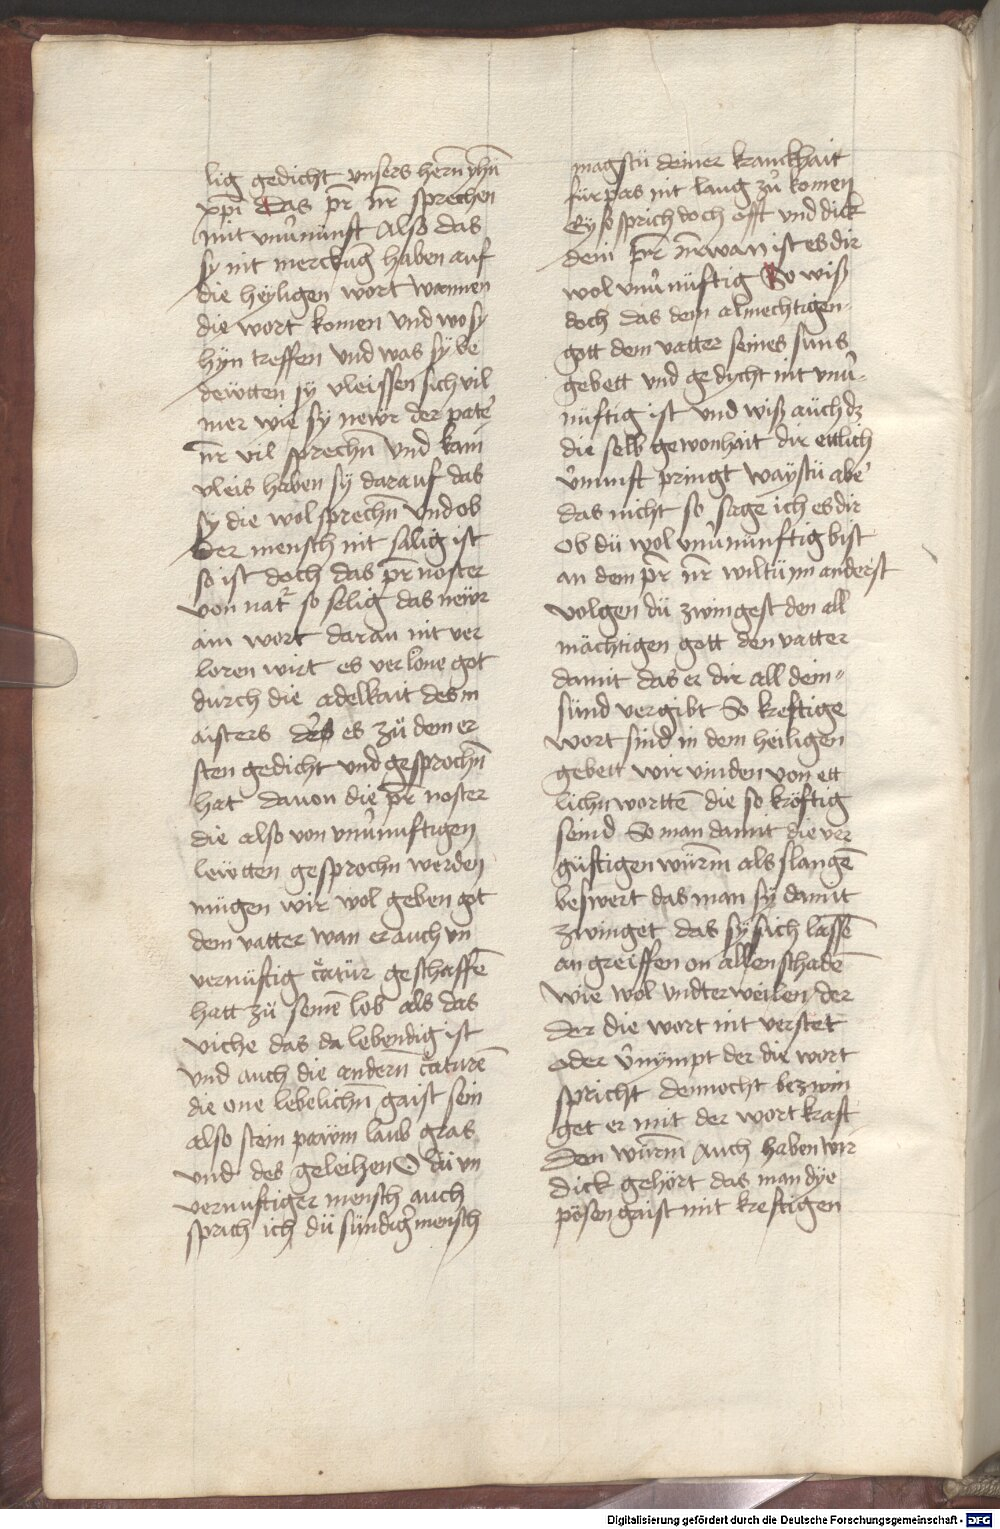 lig gedicht unsers hern̄ ih̄u
xp̄i Das pr̄ nr̄ sprechen
mit vnu̓nunft Also das
sy nit merckūg haben auf
die heyligen wort wannen
die wort komen vnd wo sy
hyn treffen vnd was sy be
dewtten sy vleissen sich vil
mer wie sy newr der pate᷑
nr̄ vil sprechn̄ vnd kain
vleis haben sy darauf das
sy die wol sprechn̄ vnd ob
der mensch nit sälig ist
so ist doch das pr̄ noster
von nat᷑ so selig das newr
ain wort daran nit ver
loren wirt es verlone got
durch die adelkait des m
aisters der es zu dem er
sten gedicht vnd gesprochn̄
hat dauon die pr̄ noster
die also von vnu̓nuftigen
lewtten gesprochn werden
mügen wir wol geben got
dem vatter wan er auch vn
vernüftig c᷑atür geschaffē
hatt zü seinē lob als das
viche das da lebendig ist
vnd auch die andern̄ c᷑aturē
die one lebelichn̄ gaist sein
also stein pawm laub gras
vnd des geleihen O du vn
vernuftiger mensch auch
sprich ich dü sündig᷑ mensch
magstü deiner kranckhait
fürpas nit laug zu komen
Ey so sprich doch offt vnd dick
dein pr̄ nr̄ wan ist es dir
wol vnu̓nüftig So wiß
doch das dem almechtigen
gott dem vatter seines suns
gebett vnd gedycht nit vnu̓
nüftig ist vnd wiß aüch dz
die selb gewonhait dir ettlich
u̓nunft pringt waystu abe᷑
das nicht so sage ich es dir
Ob dü wol vnu̓nünftig bist
an dem pr̄ nr̄ wiltü im anderst
volgen dü zwingest den all
mächtigen gott den vatter
damit das er dir all dein
sünd vergibt So kreftige
wort sind in dem heiligen
gebett wir vinden von ett
lichn wortte͂ die so kröftig
seind So man damit die ver
güftigen würm̄ als slangē
beswert das man sy damit
zwinget das sy sich lassē
an greiffen on allen schadē
wie wol vndterweilen der
der die wort nit verstet
oder u̓nympt der die wort
spricht dennocht bezwin
get er mit der wort kraft
den würm̄ Auch haben wir
dick gehört das man dye
pösen gaist mit kreftigen
Digitalisierung gefördert durch die Deutsche Forschungsgemeinschaft - DFG